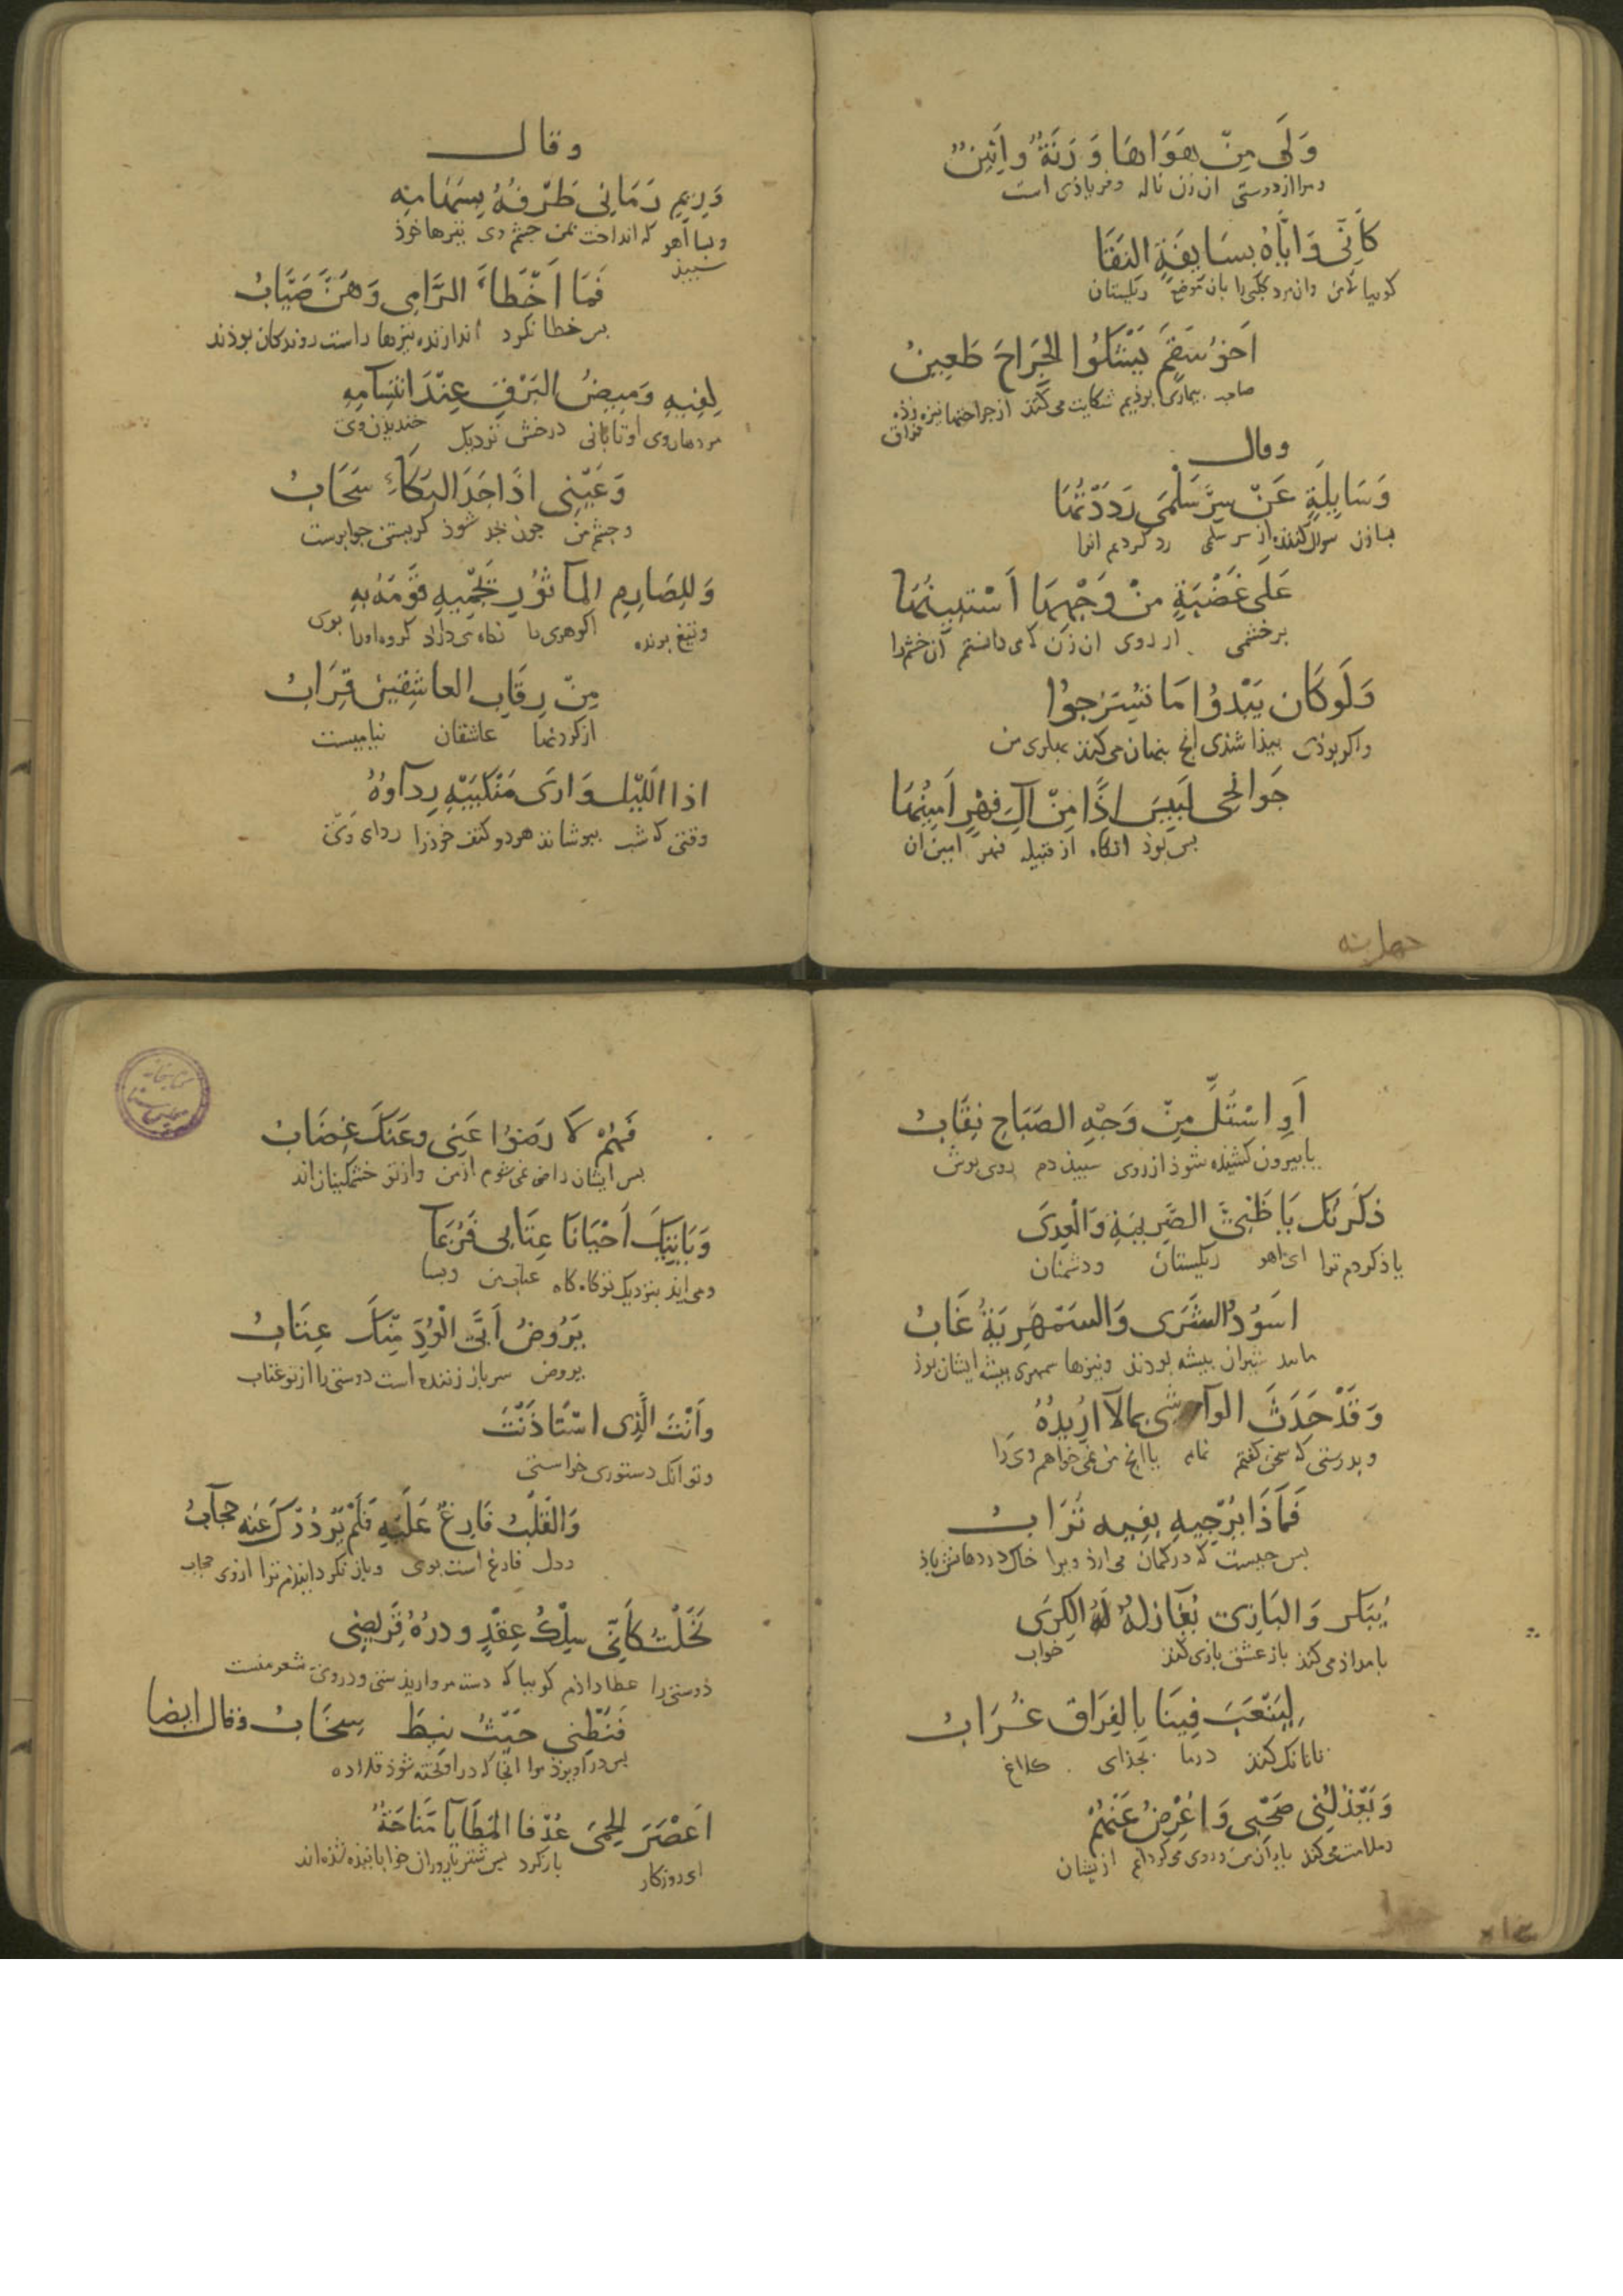 وَلَى مِنْ هَوَاهَا وَرَنَّةٌ وَاَنِينٌ
ومرا از دوستی ان زن ناله وفریاذی است
كَأَنِّى وَاِيَّاهُ بِسَابِقَةِ النَقَا
كوییا كه من وان مرد كلبی را بان موضع ریكستان
اَخُو سَقَمٍ يَشْكُوا الجِرَاحَ طَعِينُ
صاحب بیماری بوذیم شكایت می كند از جراحتها نیزه زده
فراق
وقال
وَسَايِلَةٍ عَنْ سِرِّ سَلْمَى رَدَدْتُهَا
بسا زن سوال كننده از سر سلمی رد كردیم انرا
عَلَى غَضْبَةٍ مِنْ وَجْهِهَا اَسْتَبِينُهَا
بر خشمی از روی ان زن كه می دانستم آن خشم را
وَلَو كَان يَبْدُوا مَا تُسِرُّ جوُا
واكر بوذی پیذا شذی انچ پنهان می كنند پهلوی من
جَوَانِحى لَبِيسَ اِذًا مِنْ آلِ فِهْرٍ اَمِينُهَا
پس بوذ انكاه از قبیله فهر امین ان
وقال
وَرِيمٍ رَمَانِى طَرْفُهُ بِسِهَامِهِ
وبسا آهو كه انداخت بمن چشم وی بتیرها خوذ
سپیذ
فَمَا اَخْطَاءَ الرَّامِى وَهُنَّ صِيَابُ
پس خطا نكرد اندازنده تیرها راست روندكان بوذند
لِفِيهِ وَمِيضُ البَرْقِ عِنْدَ ابْتِسَامِهِ
مر دهان وی او تابانی درخش نزدیك خندیذن وی
وَعَيْنِى اذَا جَدَ البُكَاءُ سَحَابُ
وچشم من چون جد شوذ كریستن
وَلِلصَارِمِ المَاثُورِ تَحْمِيهِ قَوْمُهُ بِهِ
وتیغ برنده نكاه می دارد كروه اورا بوی
مِنْ رِقَابِ العَاشِقِينَ قِرَابُ
از كردنها عاشقان نیامیست
اذا اللَيْل وَارَى مَنْكِبَيْهِ رِدآوُهُ
وقتی كه شب بپوشاند هر دو كتف خوذ را ردای وی
اَوِ اسْتُلَّ مِنْ وَجْهِ الصَبَاحِ نِقَابُ
یا بیرون كشیذه شوذ از روی سپیذ دم روی پوش
ذَكَرْتُكِ يَا ظَبْىَ الصَّرِيمَةِ وَالْعِدَى
یاذ كردم ترا ای آهو ریكستان ودشمنان
اسُوْدُ الشَرَى وَالسَمْهَرِيَّةُ غَابُ
مانند شیران بیشه بودند ونیزها سمهری بیشه ایشان بوذ
وَقَدْ حَدَثَ الوَآشِى بِمَا لآ ارُيدُهُ
وبدرستی كه سخن كفتم نمام باانچ من نمی خواهم وی را
فَمَاذَا يُرَجِّيهِ بِفِيهِ تُرَابُ
پس چیست كه در كمان می ارذ ویرا خاك در دهانش باذ
يُبَاكِر وَالبَازِىّ يُغَازِلهُ لَهُ الكِرَى
بامداذ می كند باز عشق بازی كند خواب
لِيَنْعَبَ فِينَا بِالفِرَاق غُرَابُ
تا بانك كند در ما بجذای كلاغ
وَيَعْذُلُنِى صَحْبِى وَاُعْرِضُ عَنْهُمْ
وملامت می كند یاران من وروی می كردانم ازیشان
فَهُمْ لَا رَضُوا عَنِى وعَنكَ غِضَابُ
پس ایشان راضی نمی شوم از من واز تو خشمكینان اند
وَيَاتِيكَ اَحْيَانَا عِتَابِى فَرُبَّمَا
ومی ایذ بنزدیك تو كاه كاه عتاب من وبسا
يَرُوضُ اَبِىَّ الْوُدِّ مِنْكَ عِتَابُ
یروض سرباز زننده است دوستی را از تو عتاب
وَاَنْتَ الَّذِى اسْتَاذَنْتَ
وتو آنك دستوری خواستی
وَالقَلْبُ فَارِغٌ عَلَيْهِ فَلَمْ يَرْدُدْكَ عَنْهُ حِجَابُ
ودل فارغ است بوی وباز نكردانیذ ترا ازوی حجاب
نَحَلْتُ كَأَنِّى سِلْكُ عِقْدٍ ودرُهُ قَرِيضِى
دوستی را عطا داذم كوییا كه دسته مروارید ستی ودر وی شعر منست
فَنَطِّنِى حَيْثُ نِيطَ سِخَابُ وقال ايضا
پس در آویزذ مرا انجا كه در اویخته شوذ قلاده
اَعَصْرَ الحِمَى عُدْ فَا المَطَايَا مُنَاخَةٌ
ای روزكار باز كرد پس شتر بارران خوابانیذه شذه اند